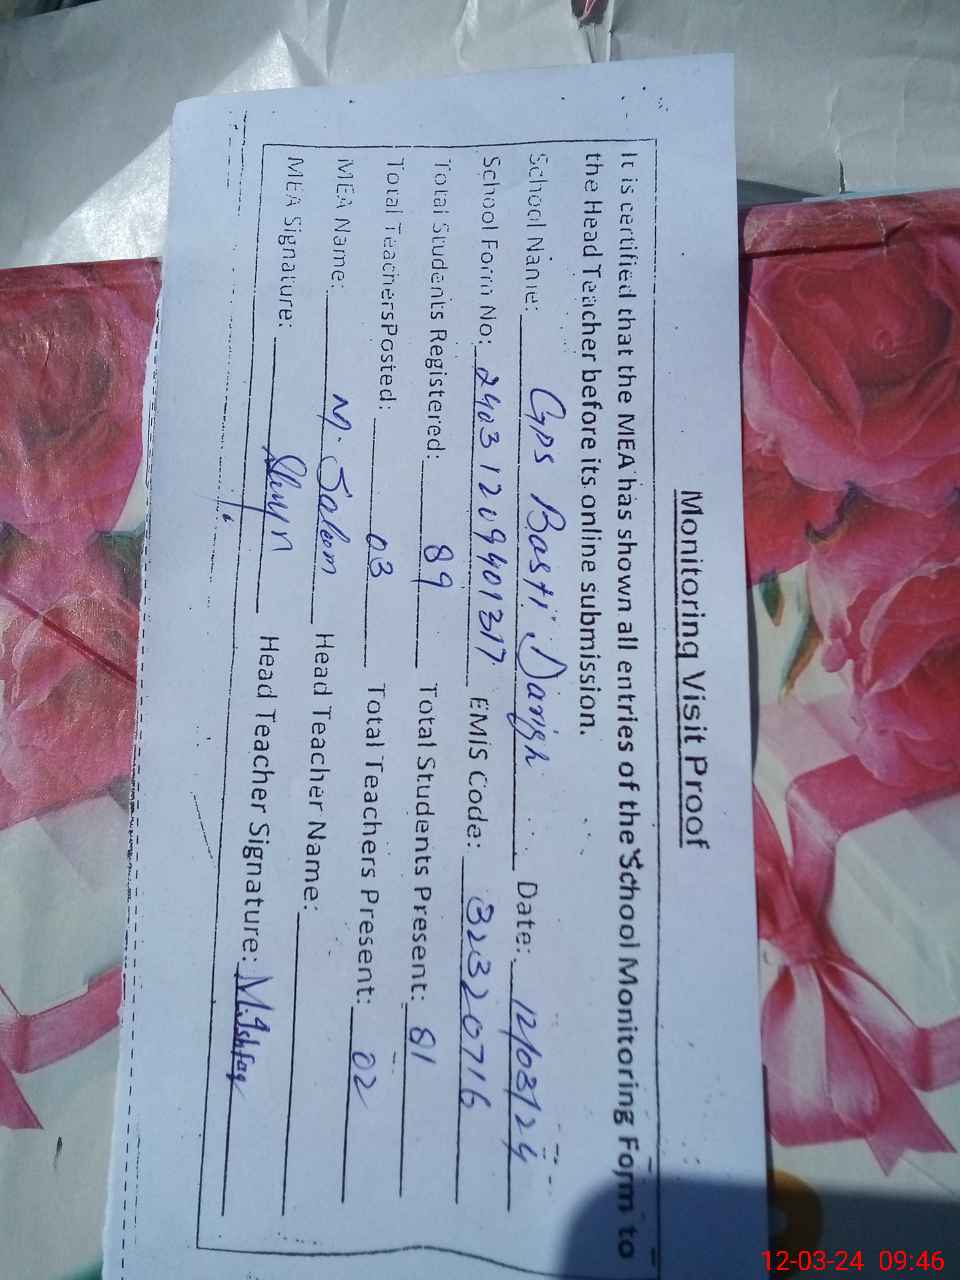 Monitoring Visit Proof
It is certified that the MEA has shown all entries of the School Monitoring Form to
the Head Teacher before its online submission.
School Name: GPS Basti Darigh Date: 12/03/24
School Form No: 24031209401317 EMIS Code: 32320716
Total Students Registered: 89 Total Students Present: 81
Total Teachers Posted: 03 Total Teachers Present: 02
MEA Name: M. Saleem Head Teacher Name:
MEA Signature: Head Teacher Signature: M. Ishfaq
12-03-24 09:46